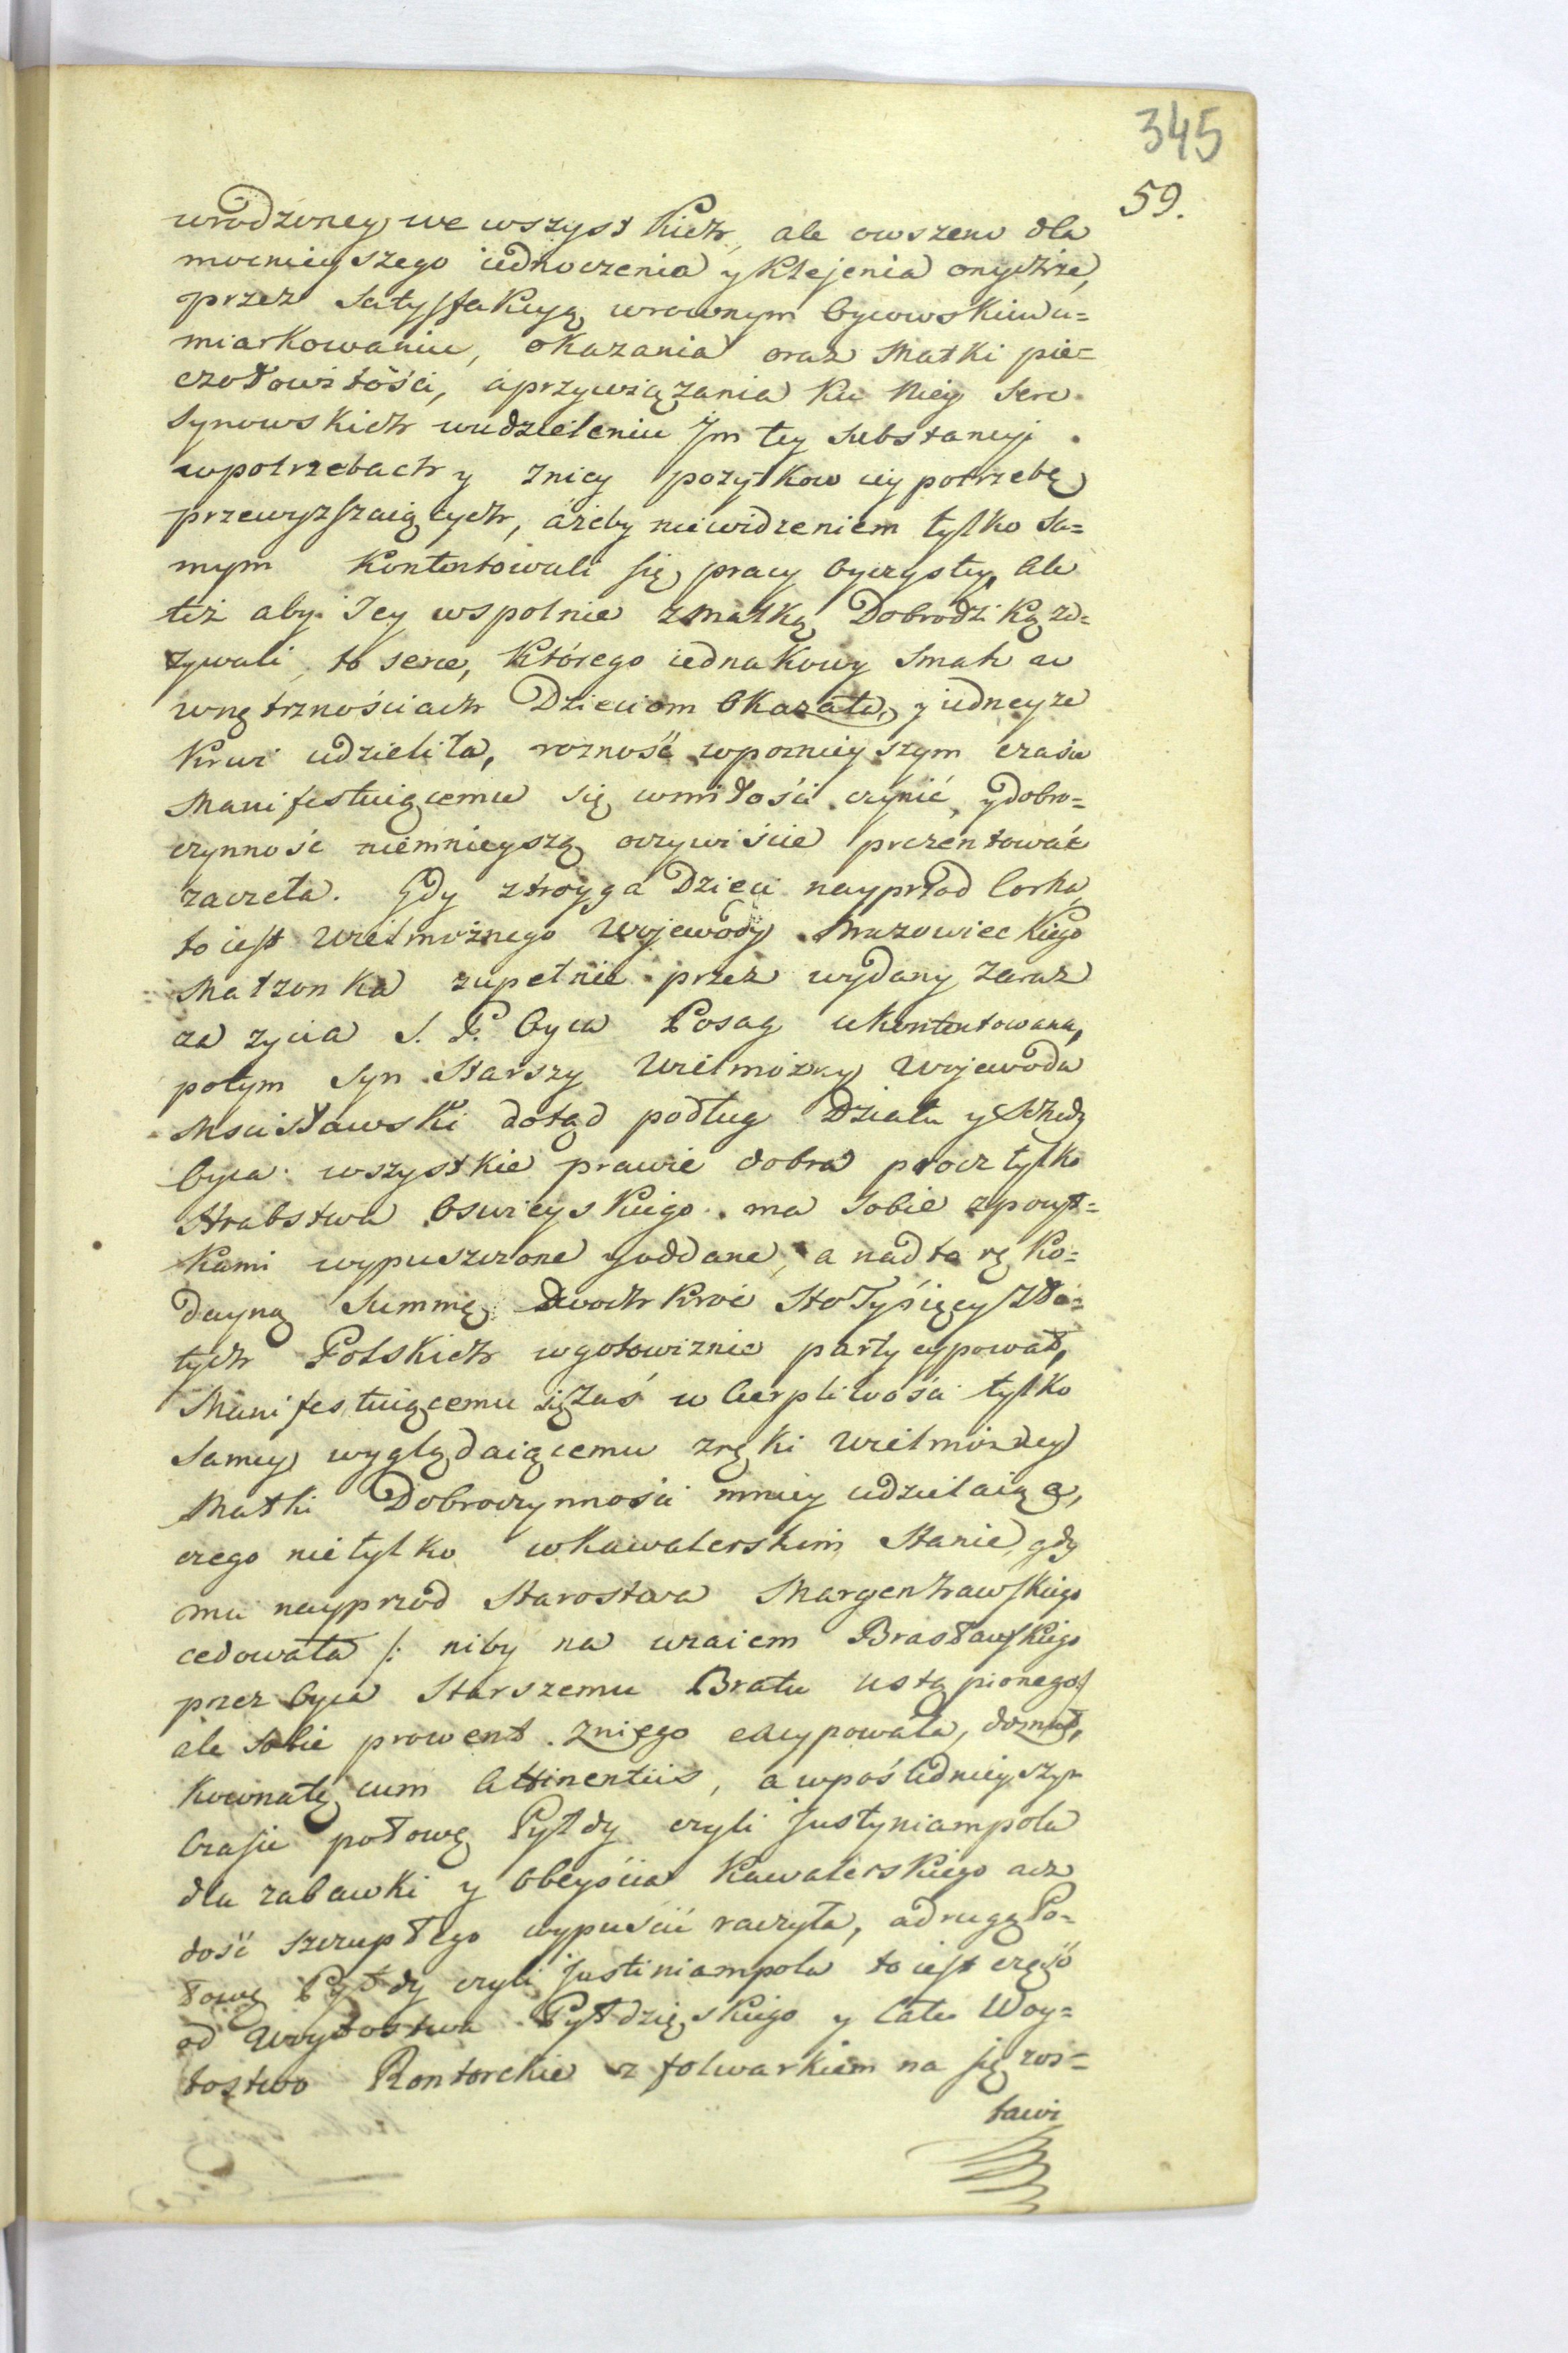 345
59.
wrodzoney we wszystkich, ale owszem dla
mocnieyszego iednoczenia y klejenia onychże,
przez Satysfakcyą wrownym Oycowskim u=
miarkowaniu, okazania oraz Matki pie=
czołowitości, aprzywiązania ku Niey Serc
Synowskich wudzieleniu Jm tey Substancyi
wpotrzebach y zniey pożytkow iey potrzebę
przewyzszaiących, ażeby niewidzeniem tylko sa=
mym kontentowali się pracy Oyczystey, Ale
też aby Jey wspolnie zmatką Dobrodziką za=
żywali, to serce, którego iednakowy Smak w
wnętrznościach Dzieciom Okazała, y iedneyże
krwi udzieliła, rożność wpoznieyszym czasie
Manifestuiącemu się wmiłości czynić, ydobro=
czynność niemnieyszą oczywiście prezentować
zaczeła. Gdy ztroyga Dzieci nayprzod Corka,
to iest Wielmożnego Wojewody Mazowieckiego
Małzonka zupełnie przez wydany zaraz
za zycia S. P. Oyca Posag ukontentowana,
potym Syn Starszy Wielmożny Wojewoda
Mscisławski dotąd podług Działu y Schedy
Oyca wszystkie prawie dobra procz tylko
Hrabstwa Osweyskiego ma Sobie zpożyt=
kami wypuszczone yoddane, a nadto ręko=
dayną Summę Dwochkroć Sto Tysięcy Zło=
tych Polskich wgotowiznie partycypował,
Manifestuiącemu się Zaś w Cierpliwości tylko
Samey wyglądaiącemu zręki Wielmożney
Matki Dobroczynności mniey udzielaiąc,
czego nietylko wkawalerskim Stanie, gdy
mu nayprzod Starostwa Margenhawskiego
cedowała /: niby na wzaiem Brasławskiego
przez Oyca Starszemu Bratu ustąpionego:/
ale sobie prowent zniego excypowała, doznał,
kownatę cum Attinentiis, a wpoślednieyszym
Czasie połowę Pyłdy czyli Justyniampola
dla zabawki y Obeyścia Kawalerskiego acz
dość szczupłego wypuścić raczyła, adrugą Po=
łowę Pyłdy czyli Justiniampola to iest część
od Woytostwa Pyłdzięskiego y Całe Woy=
tostwo Rontorckie z folwarkiem na się zos=
tawi